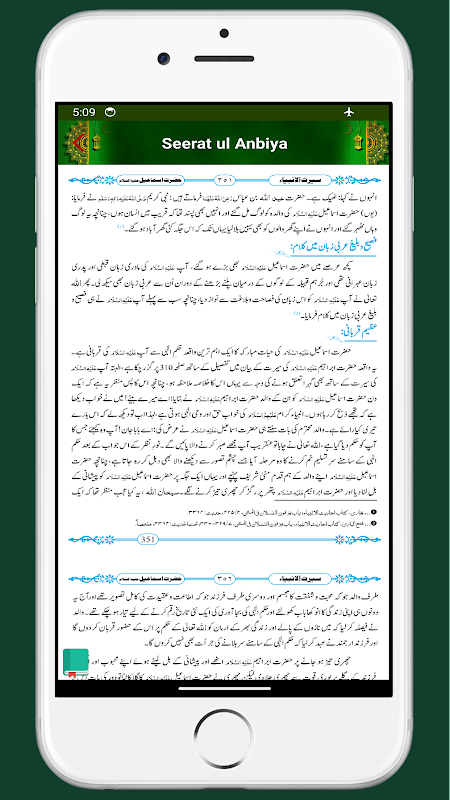 5:09
Seerat ul Anbiya
سیرت الانبیاء ٣٥١ حضرت اسماعیل علیہ السلام
انہوں نے کہا: ٹھیک ہے۔ حضرت عبد اللہ بن عباس رَضِیَ اللہُ عَنْہُمَا فرماتے ہیں: نبی کریم صَلَّی اللہُ عَلَیْہِ وَاٰلِہٖ وَسَلَّم نے فرمایا:
(یوں) حضرت اسماعیل عَلَیْہِ السَّلَام کی والدہ کو لوگ مل گئے اور انہیں بھی پسند تھا کہ قریب میں انسان ہوں، چنانچہ یہ لوگ
وہاں ٹھہر گئے اور انہوں نے اپنے گھر والوں کو بھی یہیں بلا لیا یہاں تک کہ اس جگہ کئی گھر آباد ہو گئے۔(1)
فصیح و بلیغ عربی زبان میں کلام:
کچھ عرصے میں حضرت اسماعیل عَلَیْہِ السَّلَام بھی بڑے ہو گئے، آپ عَلَیْہِ السَّلَام کی مادری زبان قبطی اور پدری
زبان عبرانی تھی اور جُرہم قبیلہ کے لوگوں کے درمیان پلنے بڑھنے کے دوران اُن سے عربی زبان بھی سیکھ لی۔ پھر اللہ
تعالیٰ نے آپ عَلَیْہِ السَّلَام کو اس زبان کی فصاحت و بلاغت سے نواز دیا، چنانچہ سب سے پہلے آپ عَلَیْہِ السَّلَام نے ہی فصیح و
بلیغ عربی زبان میں کلام فرمایا۔(2)
عظیم قربانی:
حضرت اسماعیل عَلَیْہِ السَّلَام کی حیات مبارکہ کا ایک اہم ترین واقعہ حکم الٰہی سے آپ عَلَیْہِ السَّلَام کی قربانی ہے۔
یہ واقعہ حضرت ابراہیم عَلَیْہِ السَّلَام کی سیرت کے بیان میں تفصیل کے ساتھ صفحہ 310 پر گزر چکا ہے، البتہ آپ عَلَیْہِ السَّلَام
کی سیرت کے ساتھ بھی گہرا تعلق ہونے کی وجہ سے یہاں اس کا خلاصہ ملاحظہ ہو، چنانچہ اس کا پس منظر یہ ہے کہ ایک
دن حضرت اسماعیل عَلَیْہِ السَّلَام کو ان کے والد حضرت ابراہیم عَلَیْہِ السَّلَام نے بتایا: اے میرے بیٹے! میں نے خواب دیکھا
ہے کہ تجھے ذبح کر رہا ہوں۔ انبیاء کرام عَلَیْہِمُ السَّلَام کی خواب حق اور وحی الٰہی ہوتی ہے، لہٰذا اب تو دیکھ لے کہ اس بارے
تیری کیا رائے ہے۔ والد محترم کی بات سنتے ہی حضرت اسماعیل عَلَیْہِ السَّلَام نے عرض کی: اے بابا جان! آپ وہ کیجئے جس کا
آپ کو حکم دیا گیا ہے، اللہ تعالیٰ نے چاہا تو عنقریب آپ مجھے صبر کرنے والا پائیں گے۔ نورِ نظر کے اس جواب کے بعد حکم
الٰہی کے سامنے سر تسلیم خم کرنے کا وہ مرحلہ آیا جسے چشم تصور سے دیکھنے والا بھی دہل کر رہ جاتا ہے، چنانچہ حضرت
اسماعیل عَلَیْہِ السَّلَام اپنے والد کے ہم قدم منٰی شریف پہنچے اور یہاں ایک جگہ پر حضرت اسماعیل عَلَیْہِ السَّلَام کو پیشانی کے
بل لٹا دیا اور حضرت ابراہیم عَلَیْہِ السَّلَام پتھر پر رگڑ کر چھری تیز کرنے لگے۔ سبحان اللہ، یہ کیا عجب منظر تھا کہ ایک
1... بخاری، کتاب احادیث الانبیاء، باب یزفون النسلان فی المشی، ٢/٤٢٥، حدیث: ٣٣٦٤۔
351
سیرت الانبیاء ٣٥٢ حضرت اسماعیل علیہ السلام
طرف والد جو کہ محبت و شفقت کا مجسم اور دوسری طرف فرزند جو کہ اطاعت و عقیدت کی کامل تصویر تھے اور آج یہ
دونوں ہی اپنی زندگی کا انوکھا باب کھولنے اور حکم الٰہی کی بجا آوری کی ایک نئی تاریخ رقم کرنے کے لیے تیار ہو چکے تھے۔ والد
نے فیصلہ کر لیا کہ میں نازوں کے پالے اور زندگی بھر کے ارمان کو اللہ تعالیٰ کے حکم پر اس کے حضور قربان کر دوں گا
اور فرزند ارجمند نے عہد کر لیا کہ حکم الٰہی کے سامنے سر ہلانے کی جرأت بھی نہیں کروں گا۔
چھری تیز ہو جانے پر حضرت ابراہیم عَلَیْہِ السَّلَام اٹھے اور پیشانی کے بل لیٹے ہوئے اپنے محبوب اور